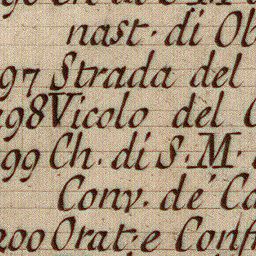 nast. di Ob
97 Strada del
98 Vicolo del
99 Ch. di S. M.
Conv. de Ca
200 Orat. e Conf